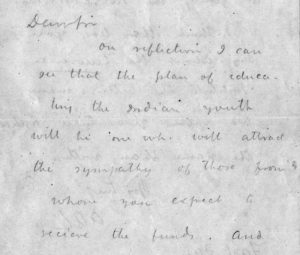 Dear Sir
on reflection I can
see that the plan of educa-
ting the Indian youth
will be one wh. will attract
the sympathy of those from
whom you expect to
recieve the funds. And